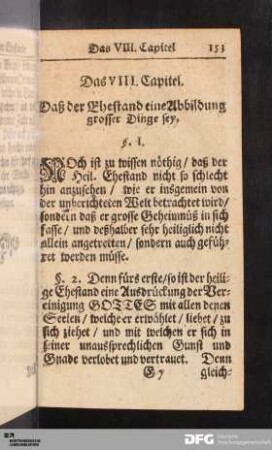 Das VIII. Capitel 153
Das VIII. Capitel.
Daß der Ehestand eine Abbildung
grosser Dinge sey.
§. I.
NOch ist zu wissen nöthig / daß der
Heil. Ehestand nicht so schlecht
hin anzusehen / wie er insgemein von
der unberichteten Welt betrachtet wird /
sondern daß er grosse Geheimnüß in sich
fasse / und deßhalber sehr heiliglich nicht
allein angetretten / sondern auch gefüh-
ret werden müsse.
§. 2. Denn fürs erste / so ist der heili-
ge Ehestand eine Ausdrückung der Ver-
einigung GOTTES mit allen denen
Seelen / welche er erwählet / liebet / zu
sich ziehet / und mit welchen er sich in
seiner unaussprechlichen Gunst und
Gnade verlobet und vertrauet. Denn
G v gleich-
DFG